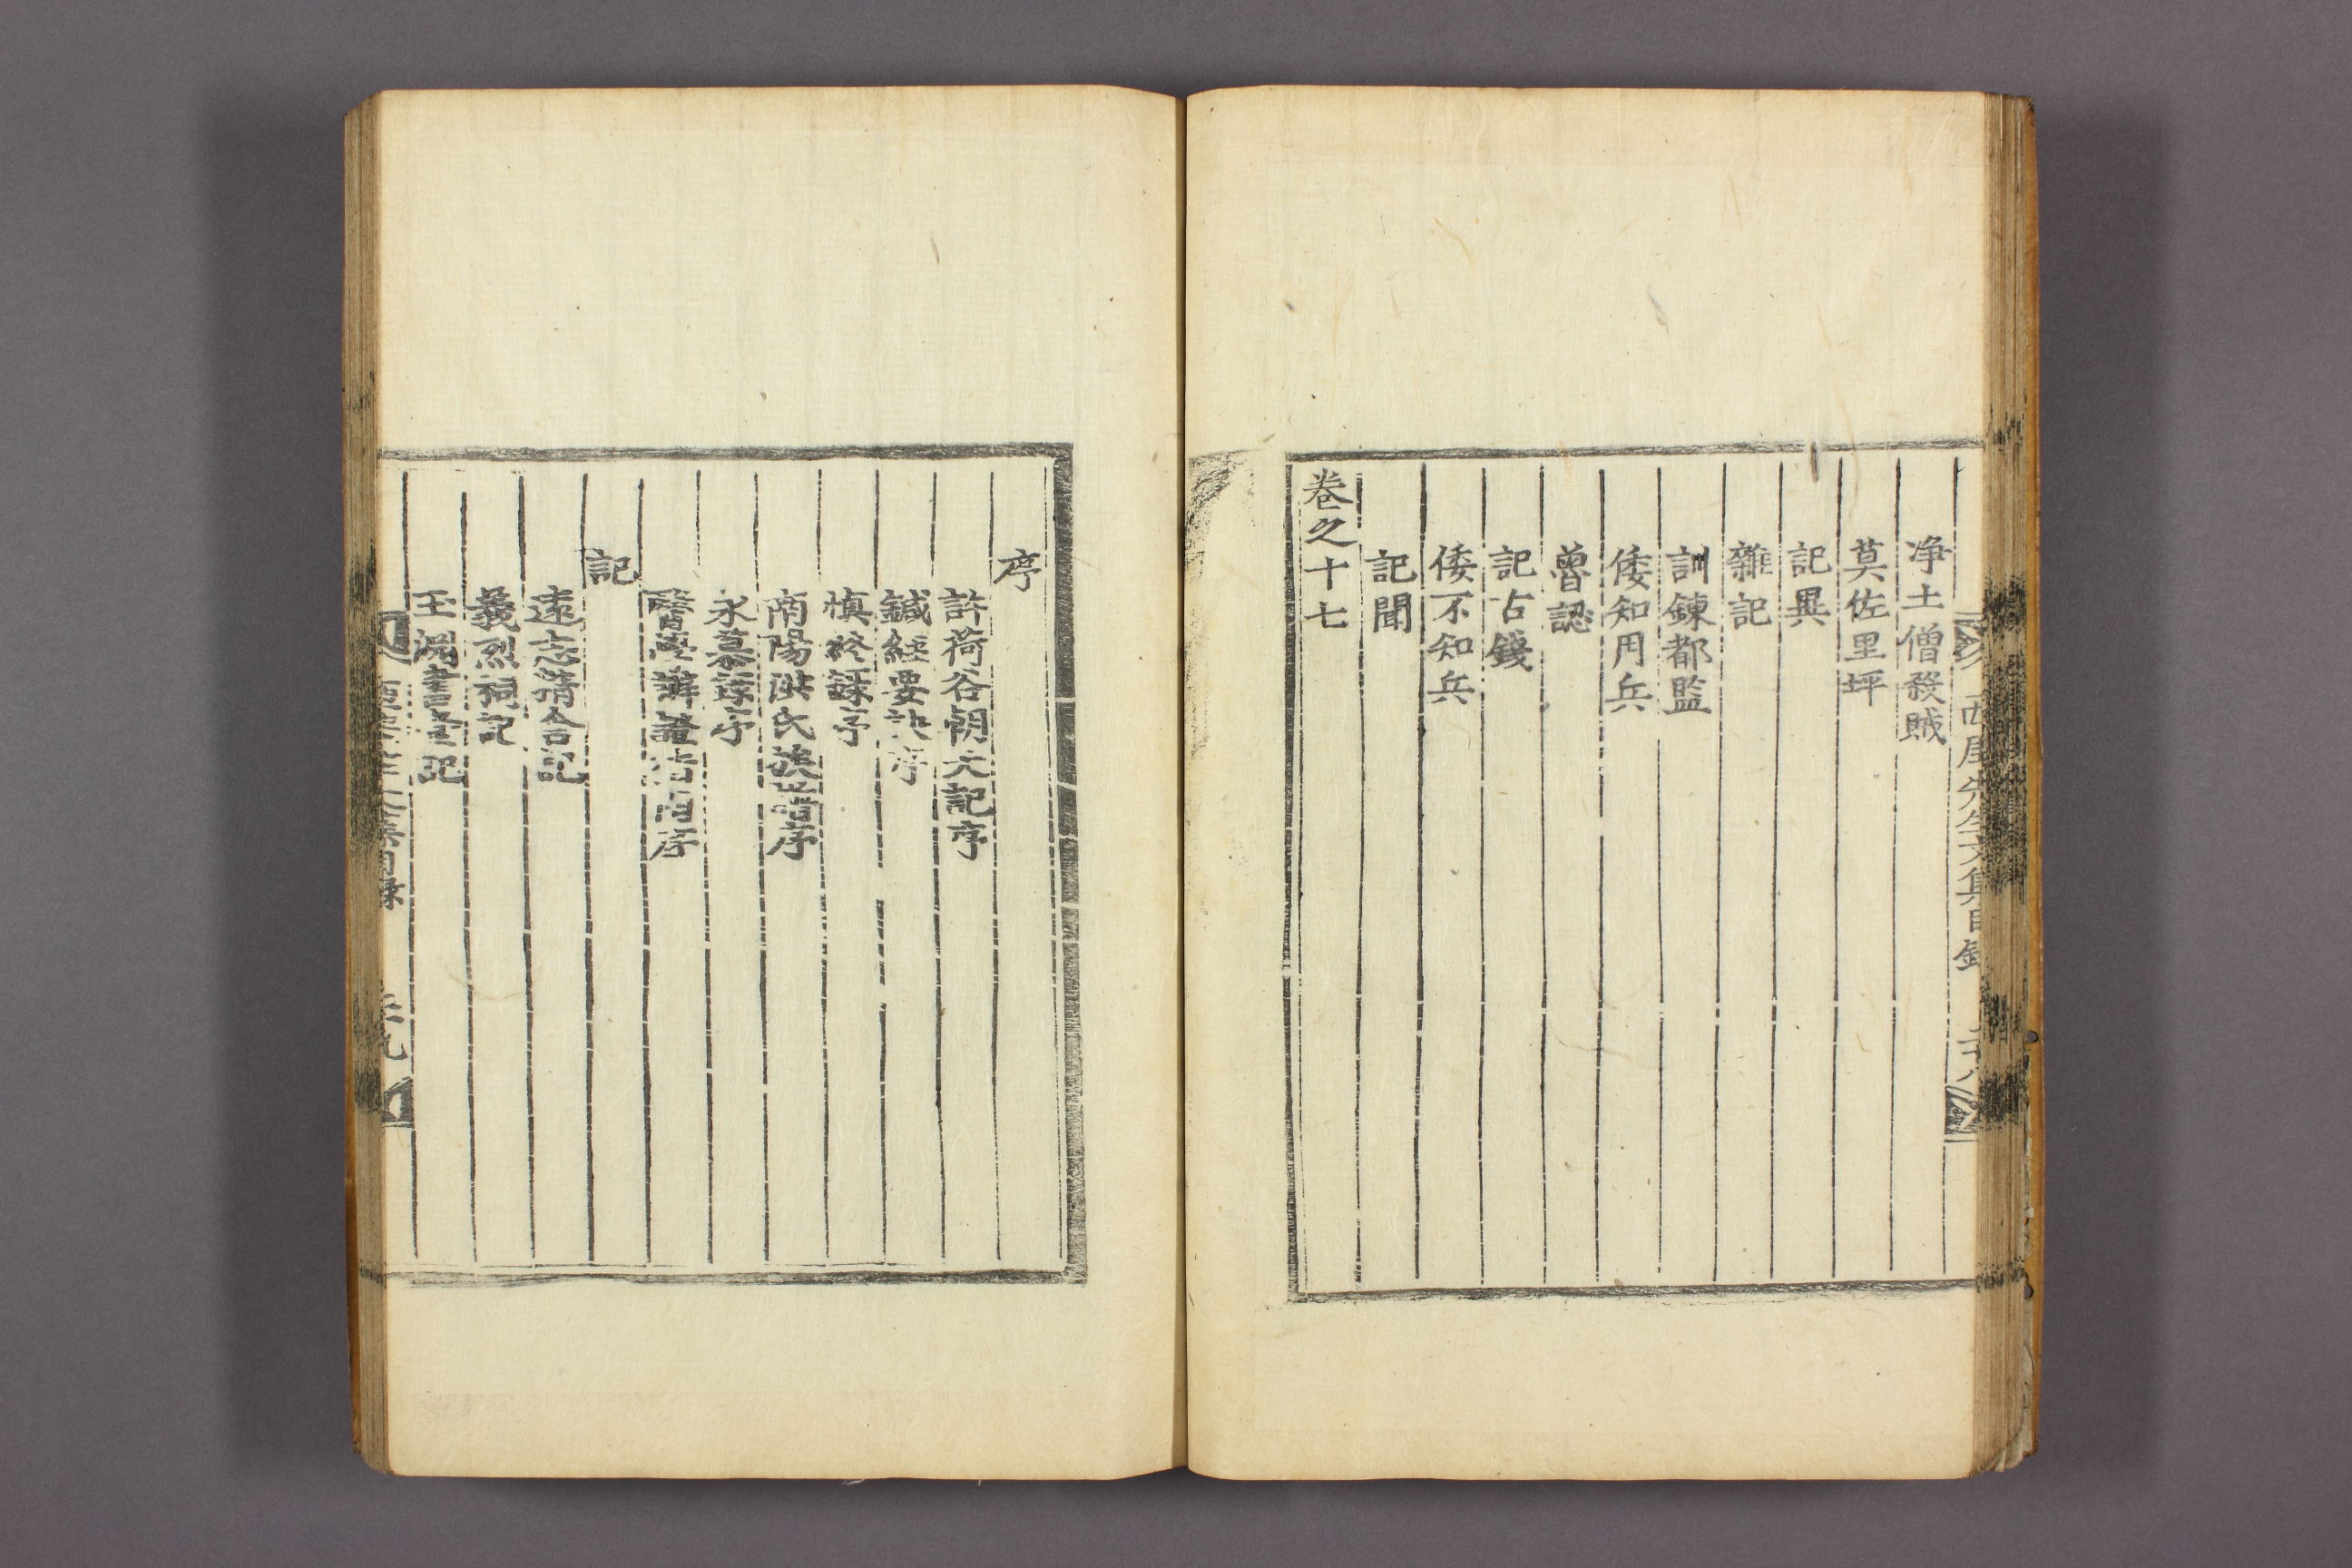 淨土僧殺賊
莫佐里坪
記異
雜記
訓鍊都監
倭知用兵
夢認
記古錢
倭不知兵
記聞
卷之十七
序
許荷谷朝天記序
鍼經要訣序
愼終錄序
南陽洪氏族譜序
永慕錄序
醫學辨證指南序
記
遠志精舍記
義烈祠記
玉淵書堂記
西厓先生文集目錄